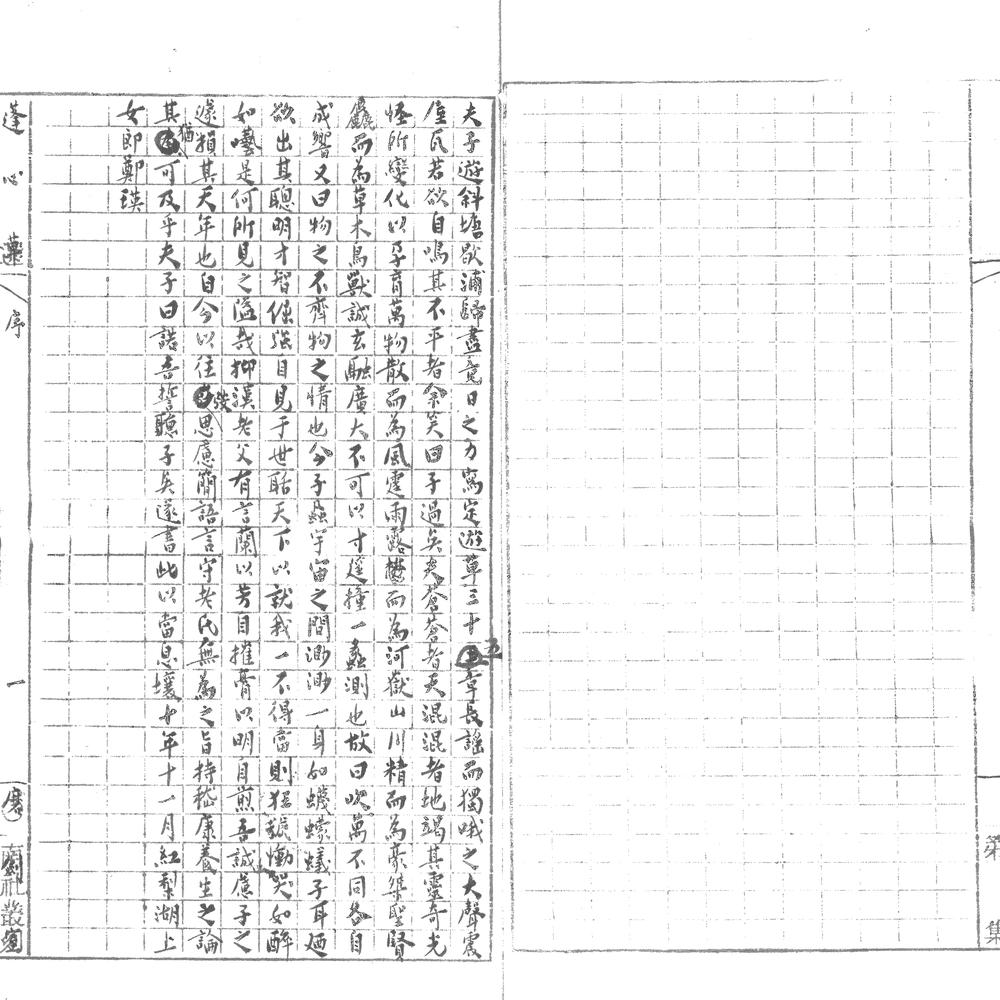 夫子遊斜塘歇浦歸盡竟日之力寫定遊草三十五章長謠而獨哦之大聲震
屋瓦若欲自鳴其不平者余笑曰子過矣夫蒼蒼者天混混者地竭其靈奇光
怪所變化以孕育萬物散而為風霆雨露挺而為河嶽山川精而為豪桀聖賢
麤而為草木鳥獸誠玄融廣大不可以寸莛撞一蠡測也故曰吹萬不同各自
成響又曰物之不齊物之情也今子蟲宇宙之間渺渺一身如蠛蠓蟻子耳迺
欲出其聰明才智倔強自見于世聒天下以就我一不得當則猖號慟哭如醉
如囈是何所見之隘哉抑漢老父有言蘭以芳自摧膏以明自煎吾誠慮子之
遽損其天年也自今以往發思慮簡語言守老氏無為之旨持嵇康養生之論
其猶可及乎夫子曰諾吾誓聽子矣遂書此以當息壤廿年十一月紅梨湖上
女郎鄭瑛
蓬心草
序
一
南社叢
第
集